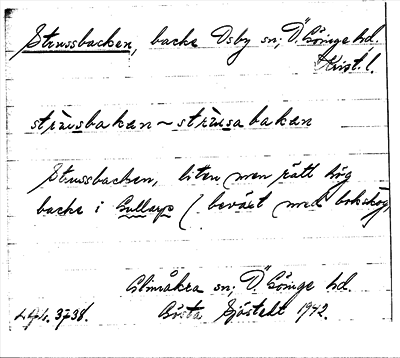 Strussbacken, backe Osby sn; Ö. Göinge hd,
Krist. l.
strusbakan ~ strussabakan
Strussbacken, liten men rätt hög
backe i Gullarp (beväxt med bokskog,
Glimåkra sn. Ö. Göinge hd.
Gösta Sjöstedt 1942.
3738.